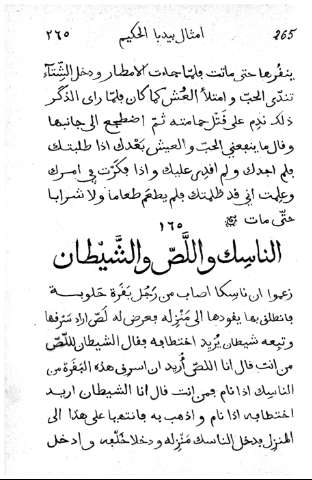 265 امثال بيدبا الحكيم ٢٦٥
ينقرها حتى ماتت فلمّا جاءت الامطار و دخل الشّتاء
تندّى الحبّ و امتلأ العُشّ كما كان فلمّا راى الذّكر
ذلك ندم على قتل حمامته ثمّ اضطجع الى جانبها
وقال ما ينفعني الحبّ والعيش بعدك اذا طلبتك
فلم اجدك و لم اقدر عليك و اذا فكّرت في امرك
وعلمت انى قد ظلمتك فلم يطعم طعاما ولا شرابا
حتّى مات
١٦٥
الناسك و اللّصّ و الشَّيْطان
زعموا ان ناسكا اصاب من رَجُل بَقَرة حَلوبة
فانطلق بها يقودها الى مَنْزِله فعرض له لَصّ اراد سَرْقها
و تبِعه شيطان يُريد اختطافه فقال الشيطان للّصّ
من انت قال انا اللصّ أُريد ان اسرق هذه البَقَرة من
الناسك اذا نام فمن انت قال انا الشيطان اريد
اختطافه اذا نام و اذهب به فانتهيا على هذا الى
المنزل فدخل الناسك مَنْزِله و دخلا خلْفه و ادخل